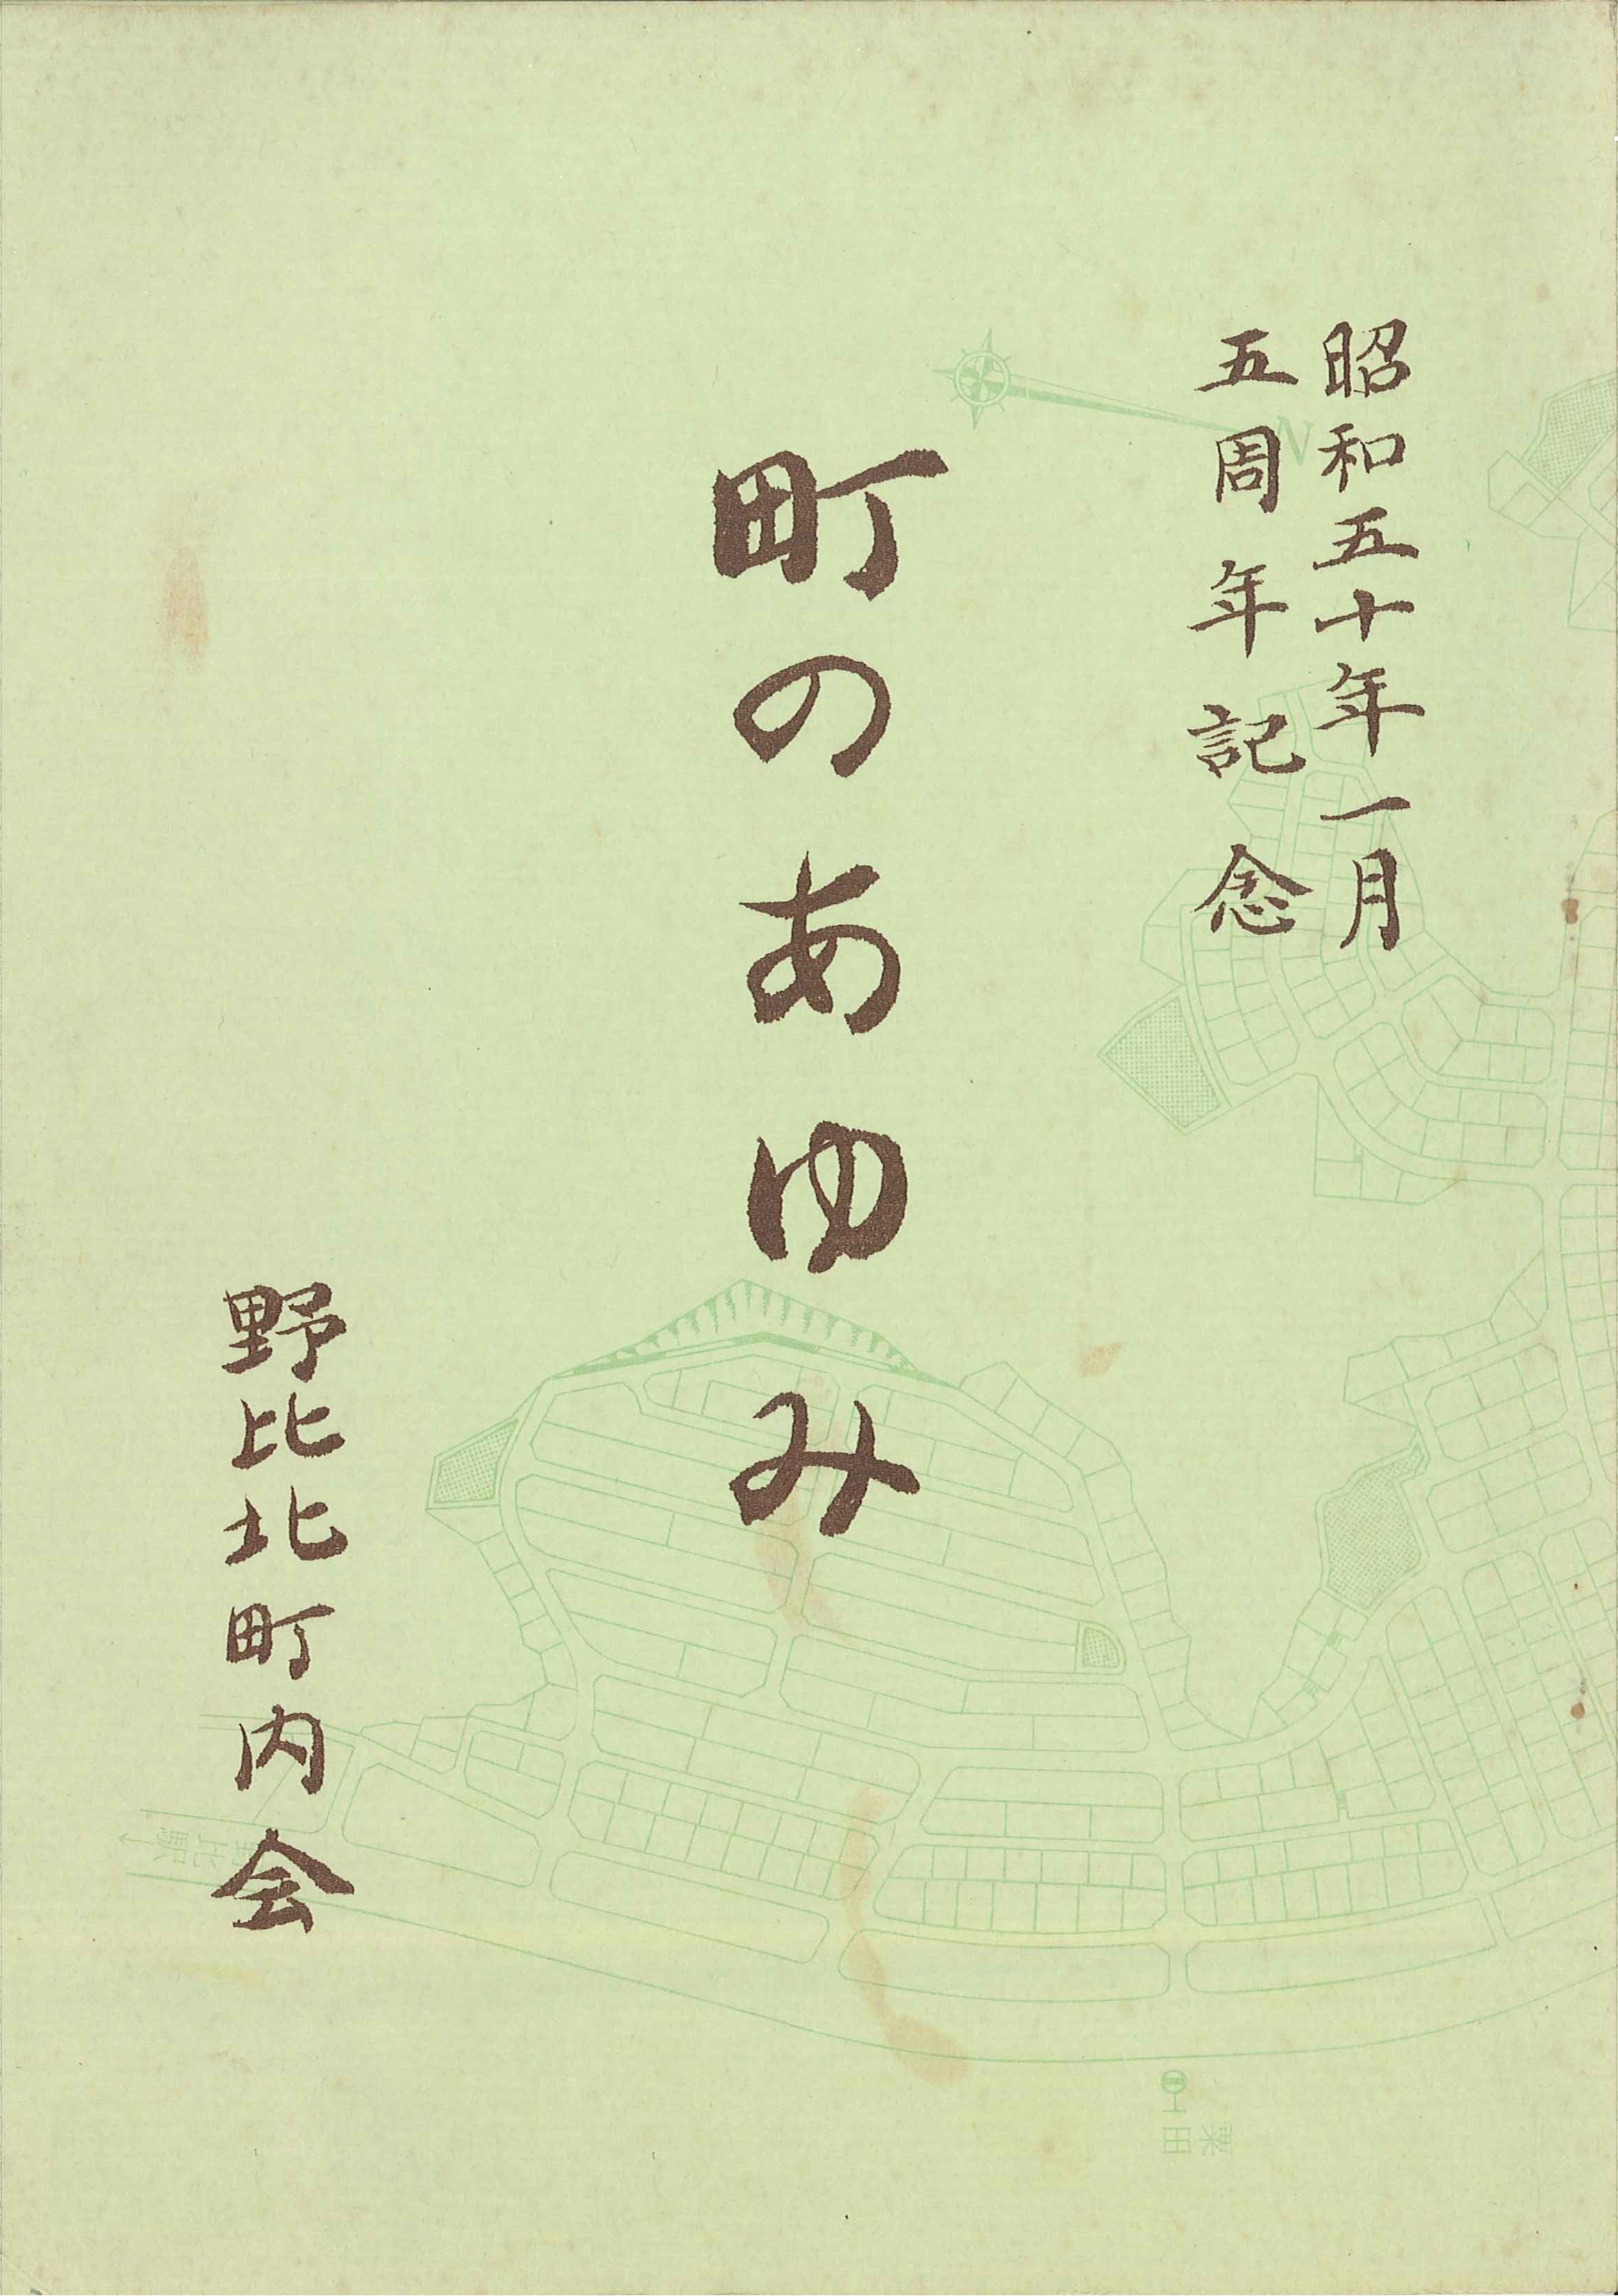 昭和五十年一月
五周年記念
町のあゆみ
野比北町内会
N
野比駅
栗田